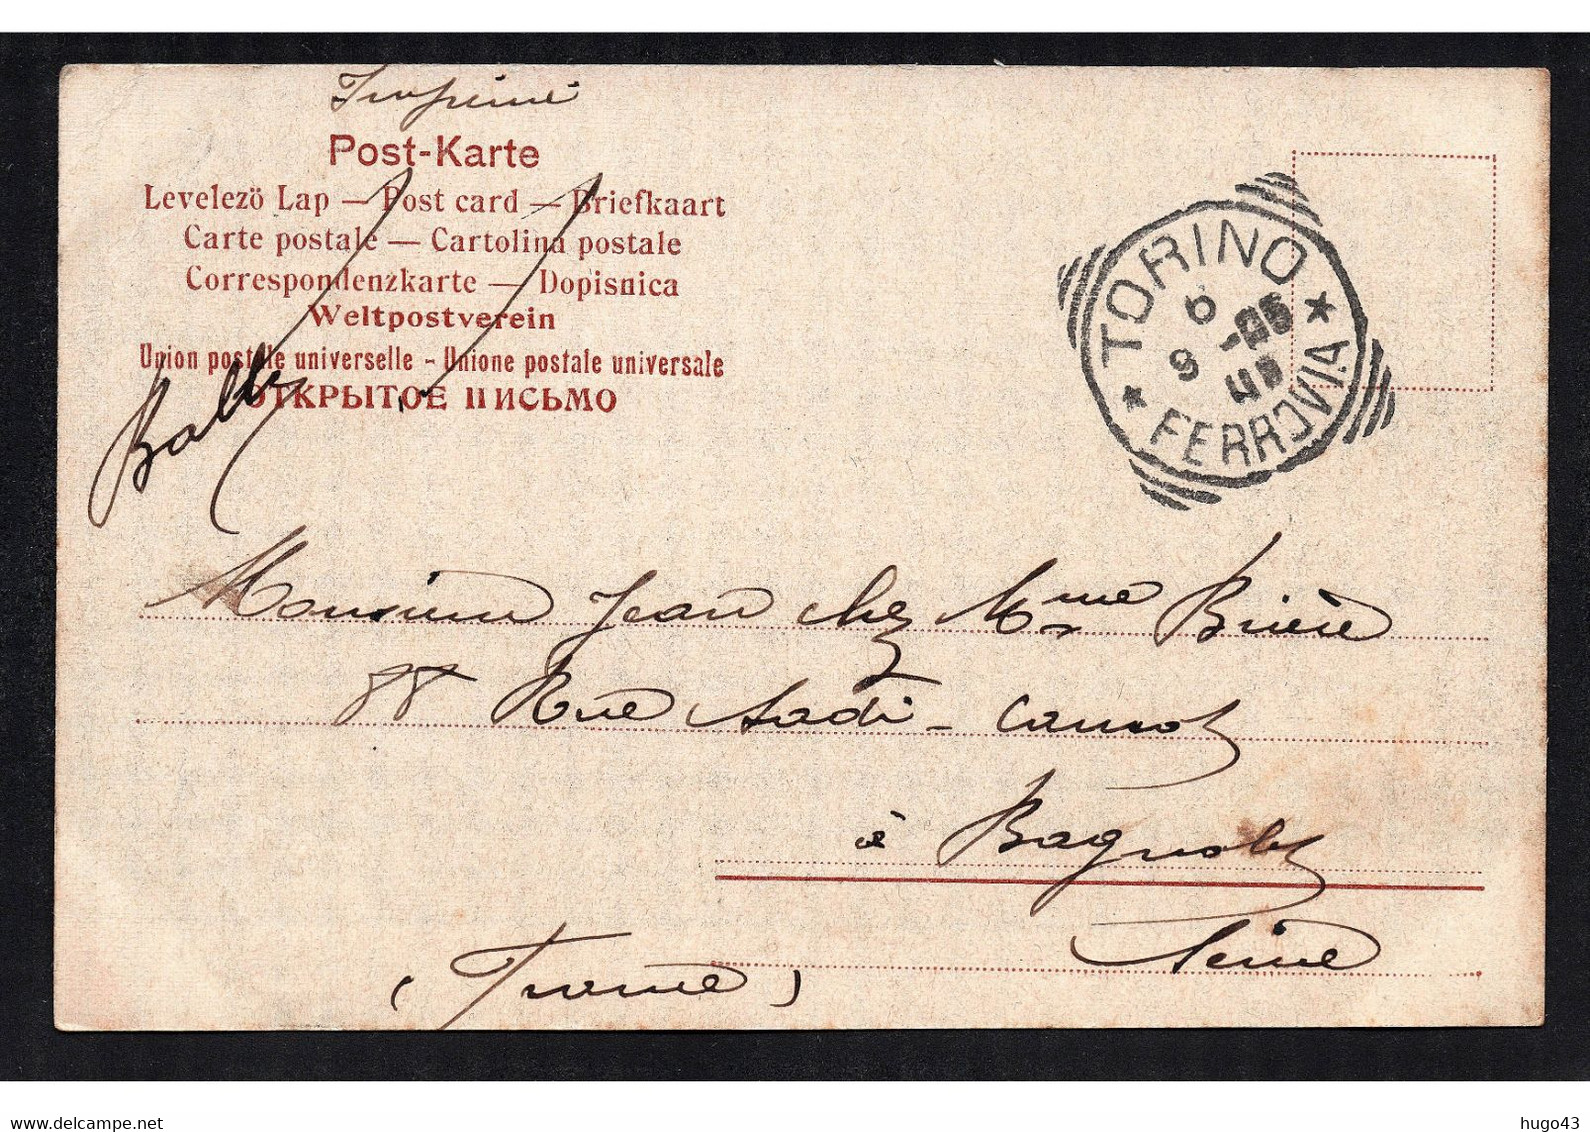 Imprimé
Post-Karte
Levelező Lap — Post card — Briefkaart
Carte postale — Cartolina postale
Correspondenzkarte — Dopisnica
Weltpostverein
Union postale universelle - Unione postale universale
ОТКРЫТОЕ ПИСЬМО
TORINO
6
9
-05
FERROVIA
Monsieur Jean chez Mme Brière
88 Rue Sadi-Carnot
à Bagnolet
Seine
(France)
www.delcampe.net
hugo43